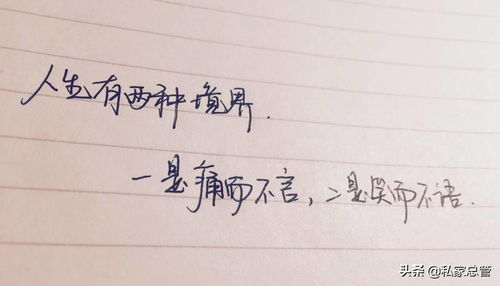 人生有两种境界.
一是痛而不言，二是笑而不语.
头条 @私家总管